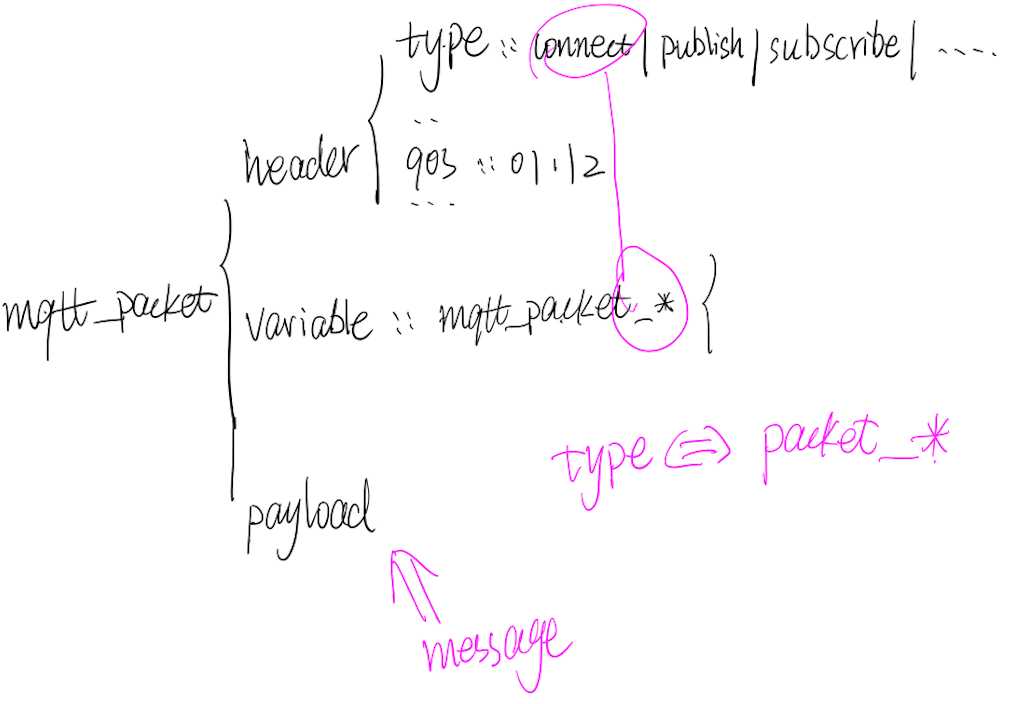 type :: connect | publish | subscribe | ....
..
header
qos :: 0 | 1 | 2
....
mqtt_packet
variable :: mqtt_packet_* {
type <=> packet_*
payload
message